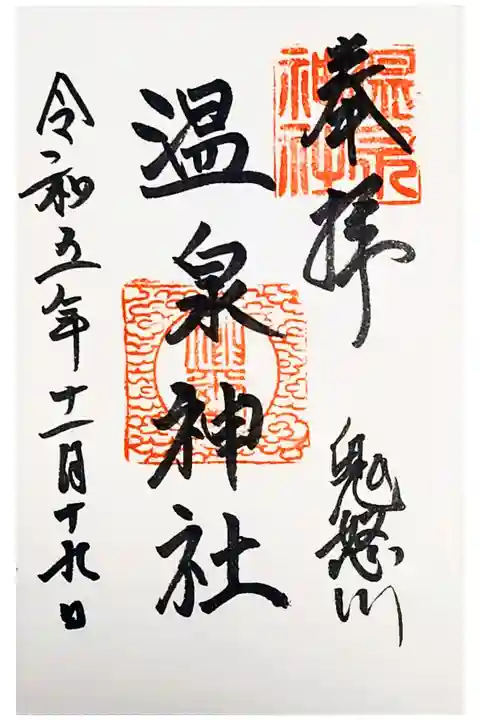 奉拝
鬼怒川
温泉神社
令和五年十一月十九日